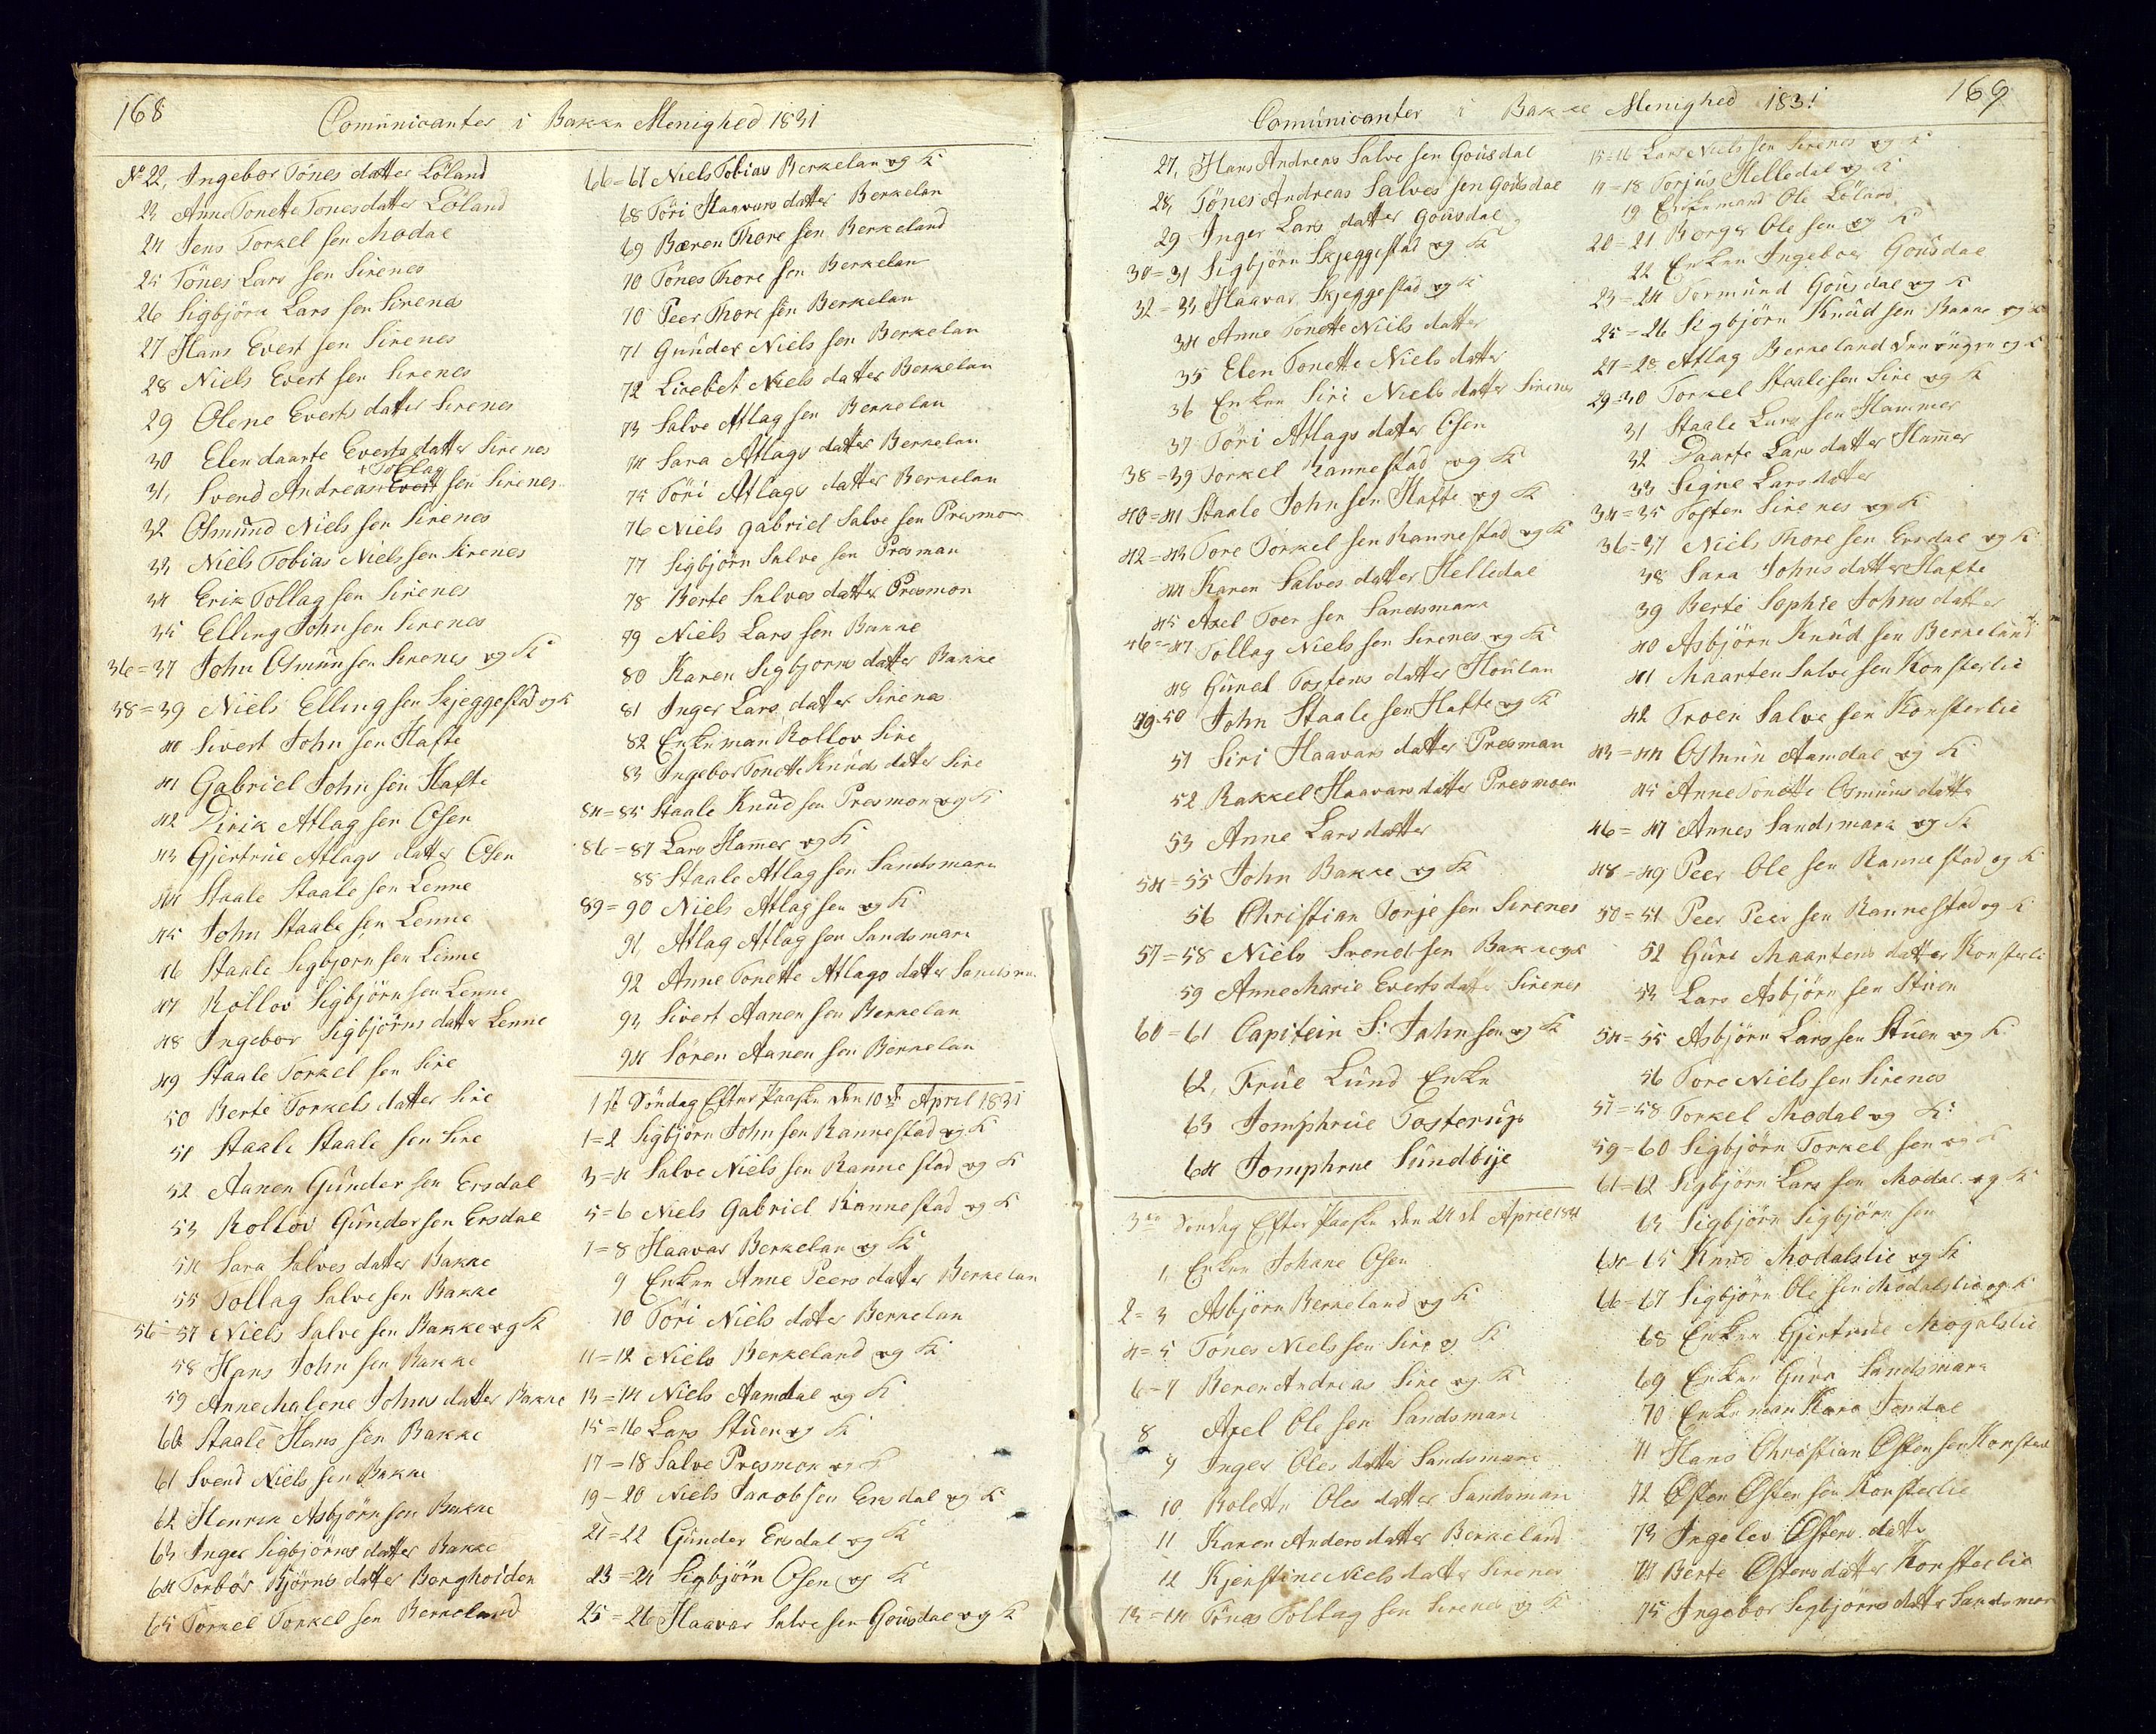 168
Comunicanter i Bakke Menighed 1831
No 22, Ingebor Tönes datter Löland
23 Anne Tonette Tones datter Löland
24 Jens Torkel sen Modal
25 Tönes Lars sen Sirenes
26 Sigbjörn Lars sen Sirenes
27 Hans Evert sen Sirenes
28 Niels Evert sen Sirenes
29 Olene Everts datter Sirenes
30 Elen daarte Everts datter Sirenes
31, Svend Andreas Tollag sen Sirenes
32 Osmund Niels sen Sirenes
33 Niels Tobias Niels sen Sirenes
34 Erik Tollag sen Sirenes
35 Elling John sen Sirenes
36=37 John Osmun sen Sirenes og K
38=39 Niels Elling sen Skjeggestad og K
40 Sivert John sen Hafte
41 Gabriel John sen Hafte
42 Dirik Atlag sen Osen
43 Gjertrue Atlags datter Osen
44 Staale Staale sen Lenne
45 John Staale sen Lenne
46 Staale Sigbjorn sen Linne
47 Rollov Sigbjörn sen Lenne
48 Ingebor Sigbjörns datter Lenne
49 Staale Torkel sen Sire
50 Berte Torkels datter Sire
51 Staale Staale sen Sire
52 Aanen Gunder sen Ersdal
53 Rollov Gunder sen Ersdal
54 Sara Salves datter Bakke
55 Tollag Salve sen Bakke
56=57 Niels Salve sen Bakke og K
58 Hans John sen Bakke
59 Anne Malene Johns datter Bakke
60 Staale Hans sen Bakke
61 Svend Niels sen Bakke
62 Henrik Asbjörn sen Bakke
63 Inger Sigbjörns datter Bakke
64 Torbör Björns datter Borghoiden
65 Torkel Torkel sen Berkeland
66=67 Niels Tobias Berkelan og K
68 Töri Haavars datter Berkelan
69 Bæren Thore sen Berkeland
70 Tönes Thore sen Berkelan
70 Peer Thore sen Berkelan
71 Gunder Niels sen Berkelan
72 Lisebet Niels datter Berkelan
73 Salve Atlag sen Berkelan
74 Sara Atlags datter Berkelan
75 Töri Atlags datter Berkelan
76 Niels gabriel Salve sen Presmon
77 Sigbjörn Salve sen Presman
78 Berte Salves datter Presmon
79 Niels Lars sen Bakke
80 Karen Sigbjorns datter Bakke
81 Inger Lars datter Sirenes
82 Enkeman Rollov Sire
83 Ingebor Tonette Knuds datter Sire
84=85 Staale Knud sen Presmon og K
86=87 Lars Hamer og K
88 Staale Atlag sen Sandsmark
89=90 Niels Atlag sen og K
91 Atlag Atlag sen Sandsmark
92 Anne Tonette Atlags datter
93 Sivert Aanen sen Berkelan
94 Sören Aanen sen Berkelan
1ste Söndag Efter Paaske den 10de April 1831
1=2 Sigbjörn John sen Rannestad og K
3=4 Salve Niels sen Ranne stad og K
5=6 Niels Gabriel Rannestad og K
7=8 Haavar Berkelan og K
9 Enken Anne Peers datter Berkelan
10 Töri Niels datter Berkelan
11=12 Niels Berkeland og K
13=14 Niels Aamdal og K
15=16 Lars Stuen og K
17=18 Salve Presmon og K
19=20 Niels Jakob sen Ersdal og K
21=22 Gunder Ersdal og K
23=24 Sigbjörn Osen og K
25=26 Haavar Salve sen Gousdal og K
169
Comunicanter i Bakke Menighed 1831
27, Hans Andreas Salve sen Gousdal
28, Tönes Andreas Salves sen Gousdal
29 Inger Lars datter Gousdal
30=31 Sigbjörn Skjeggestad og K
32=33 Haavar Skjeggestad og K
34 Anne Tonette Niels datter
35 Elen Tonette Niels datter
36 Enken Siri Niels datter Sirenes
37 Töri Atlags datter Osen
38=39 Torkel Rannestad og K
40=41 Staale John sen Hafte og K
42=43 Tore Torkel sen Rannestad og K
44 Karen Salves datter Helledal
45 Axel Toer sen Sandsmark
46=47 Tollag Niels sen Sirenes og K
48 Gunel Tostens datter Houlan
49=50 John Staale sen Hafte og K
51 Siri Haavars datter Presman
52 Rakkel Haavars datter Presmoen
53 Anne Lars datter
54=55 John Bakke og K
56 Christian Torje sen Sirenes
57=58 Niels Svend sen Bakke og K
59 Anne Marie Everts datter Sirenes
60=61 Capitein S: Jahnsen og K
62, Frue Lund Enke
63 Jomphrue Tosterups
64 Jomphrue Sundbÿe
3de Søndag Efter Paaske den 24de April 1831
1, Enken Johane Osen
2=3 Asbjörn Berkeland og K
4=5 Tönes Niels sen Sire og K
6=7 Beren Andreas Sire og K
8 Axel Ole sen Sandsmark
9 Inger Oles datter Sandsmark
10 Rolette Oles datter Sandsmark
11 Karen Anders datter Berkeland
12 Kjerstine Niels datter Sirenes
13=14 Tönes Tollag sen Sirenes og K
15=16 Lars Niels sen Sirenes og K
17=18 Torjus Helledal og K
19 Enkemand Ole Löland
20=21 Borger Ole sen og K
22 Enken Ingebor Gousdal
23=24 Tormund Gousdal og K
25=26 Sigbjörn Knud sen Bakke og K
27=28 Atlag Berkeland den üngre og K
29=30 Torkel Staale sen Sire og K
31 Staale Lars sen Hammer
32 Daarte Lars datter Hamer
33 Signe Lars datter
34=35 Tosten Sirenes og K
36=37 Niels Thore sen Ersdal og K
38 Sara Johns datter Hafte
39 Berte Sophie Johns datter
40 Asbjörn Knud sen Berkeland
41 Maarten Salve sen Konsterlie
42 Troen Salve sen Konsterlie
43=44 Osmun Aamdal og K
45 Anne Tonette Osmuns datter
46=47 Annes Sandsmark og K
48=49 Peer Ole sen Rannestad og K
50=51 Peer Peer sen Rannestad og K
52 Guri Maartens datter Konsterli
53 Lars Asbjörn sen Stuen
54=55 Asbjörn Lars sen Stuen og K
56 Tore Niels sen Sirenes
57=58 Torkel Modal og K:
59=60 Sigbjörn Torkel sen og K
61=62 Sigbjörn Lars sen Modal og K
63 Sigbjörn Sigbjörn sen
64=65 Knud Modalslie og K
66=67 Sigbjörn Ole sen Modalslie og K
68 Enken Gjertrude Mogalslie
69 Enken Gura Sandsmark
70 Enkeman
71 Hans Christian Østen sen
72 Østen Østen sen Konsterlie
73 Ingelev Østens datter
74 Berte Østens datter Konsterlie
75 Ingebor Sigbjörns datter Sandsmark